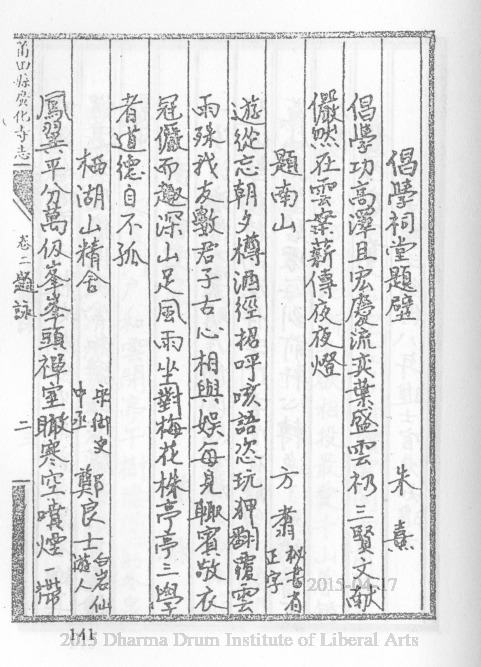 倡學祠堂題壁　朱熹
倡學功高澤且宏慶流奕葉盛雲礽三賢文獻
儼然在雲案薪傳夜夜燈
題南山　方翥秘書省正字
遊從忘朝夕樽酒徑招呼咳語恣玩狎翻覆雲
雨殊我友數君子古心相與娛每見輒賓敬衣
冠儼而趣深山足風雨坐對梅花株亭亭三學
者道德自不孤
栖湖山精舍　宋御史中丞鄭良士白岩仙遊人
鳳翼平分萬仞峯峯頭禪室瞰寒空噴煙一帶
莆田縣廣化寺志
卷二題詠
二
141
2015-04-17
2015 Dharma Drum Institute of Liberal Arts